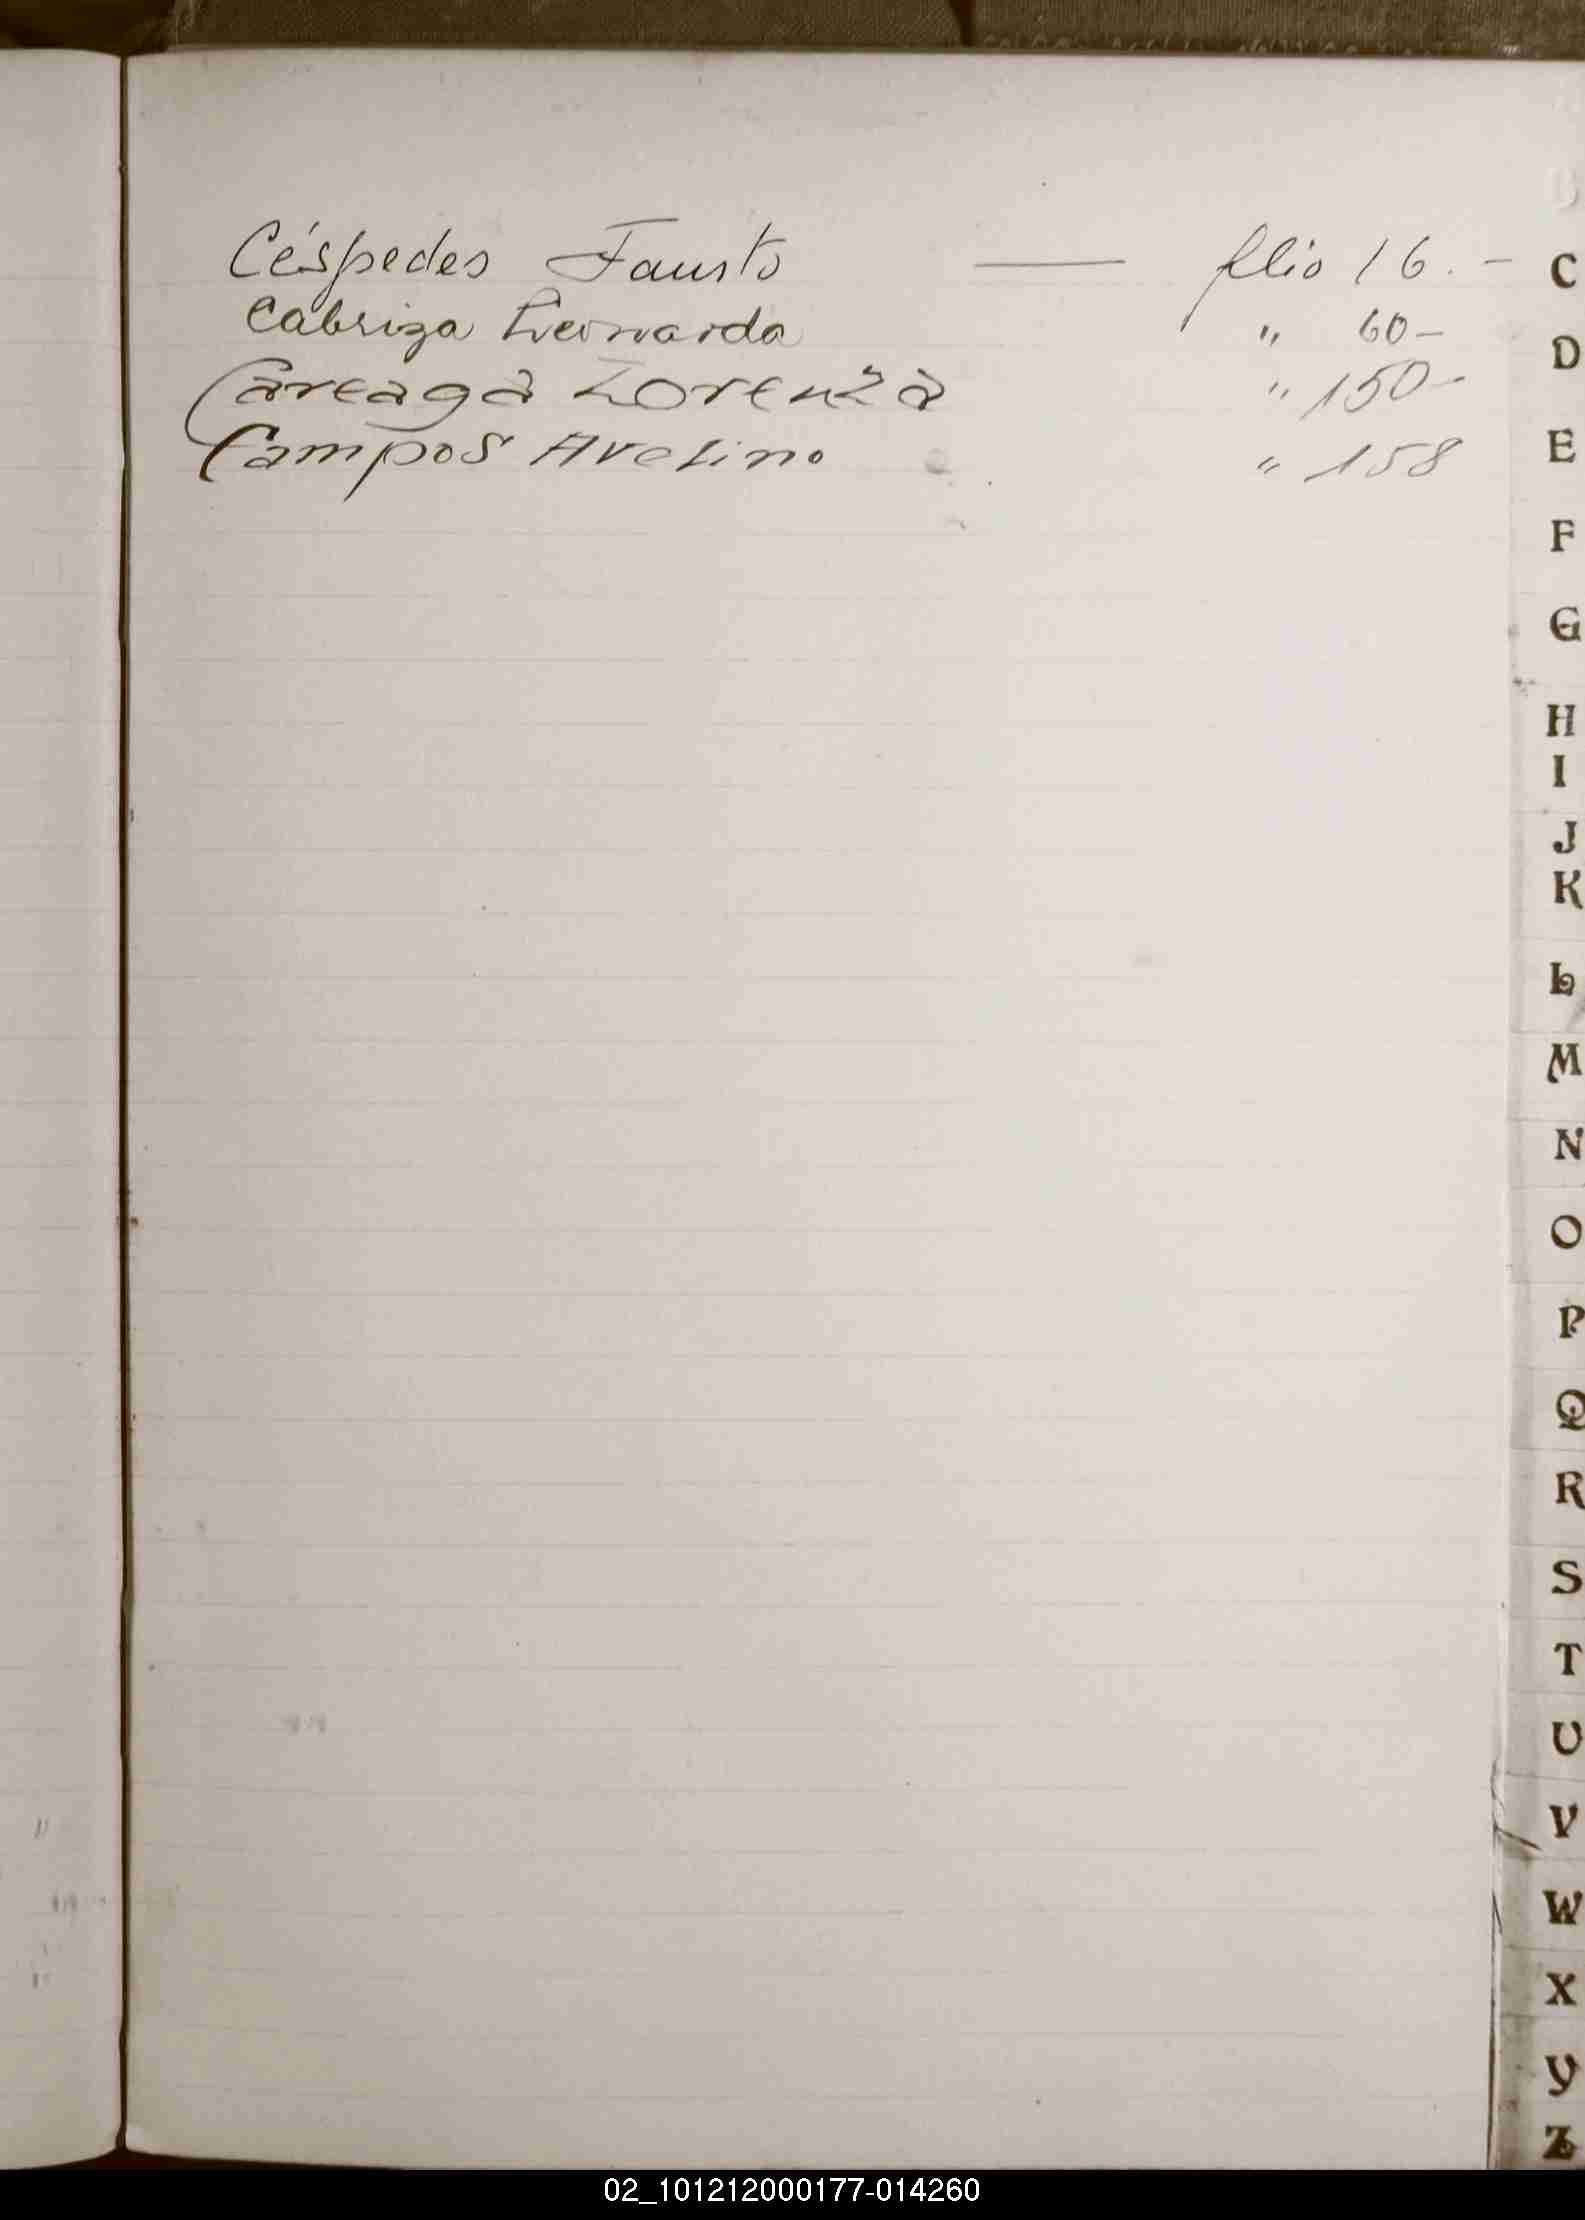 Céspedes Fausto — folio 16. -
Cabriza Leonarda " 60-
Careaga Lorenza " 150-
Campos Avelino " 158
C
D
E
F
G
H
I
J
K
L
M
N
O
P
Q
R
S
T
U
V
W
X
Y
Z
02_101212000177-014260